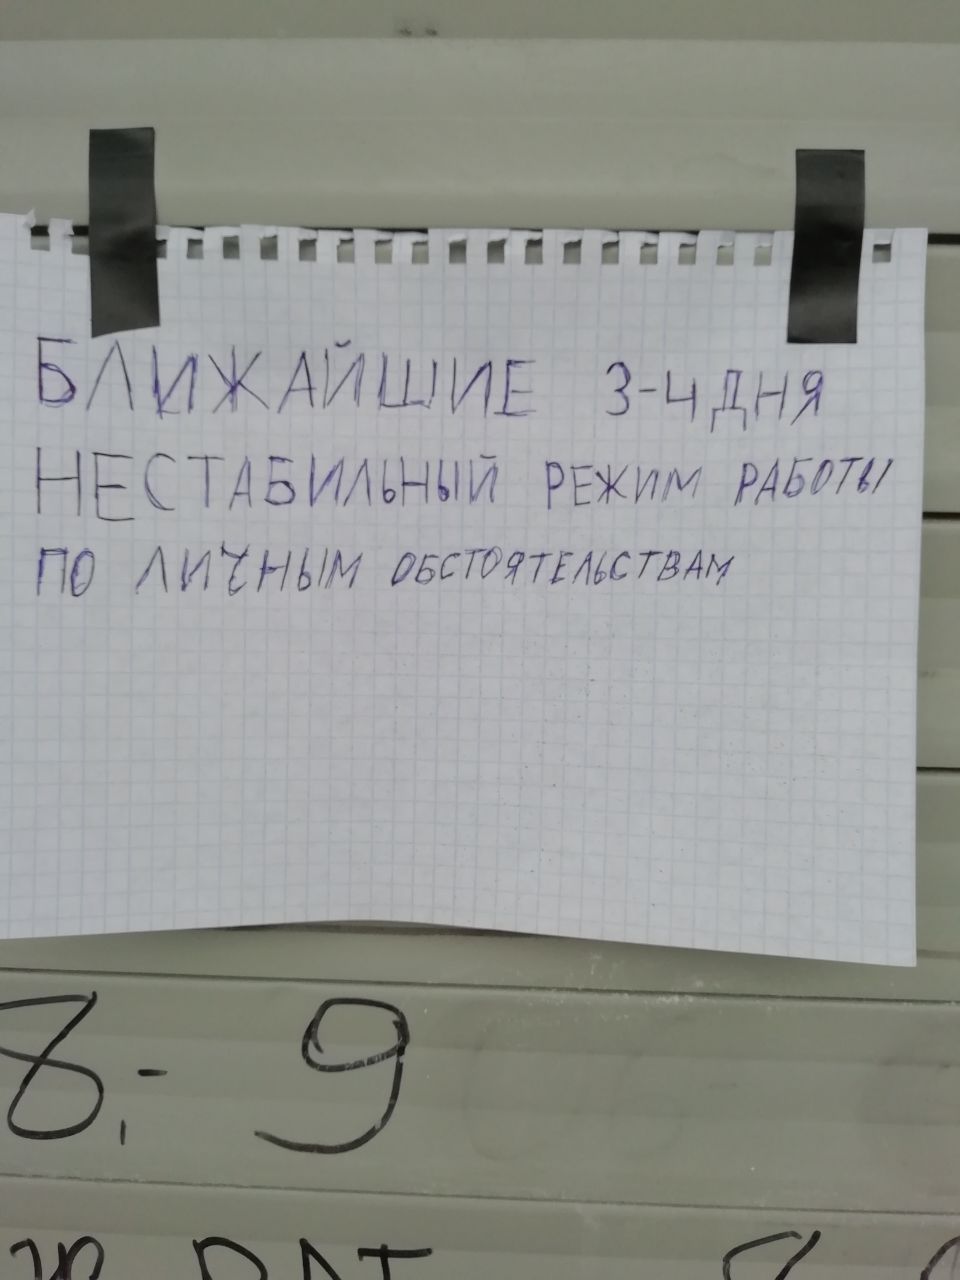 БЛИЖАЙШИЕ 3-4 ДНЯ
НЕСТАБИЛЬНЫЙ РЕЖИМ РАБОТЫ
ПО ЛИЧНЫМ ОБСТОЯТЕЛЬСТВАМ
8,- 9